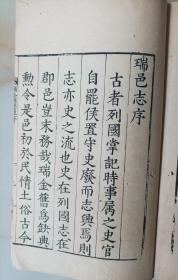 瑞邑志序
古者列國掌記時事属之史官
自罷侯置守史廢而志興焉則
志亦史之流也史在列國志在
郡邑豈末務哉瑞金舊爲缺典
勲令是邑初於民情土俗古今